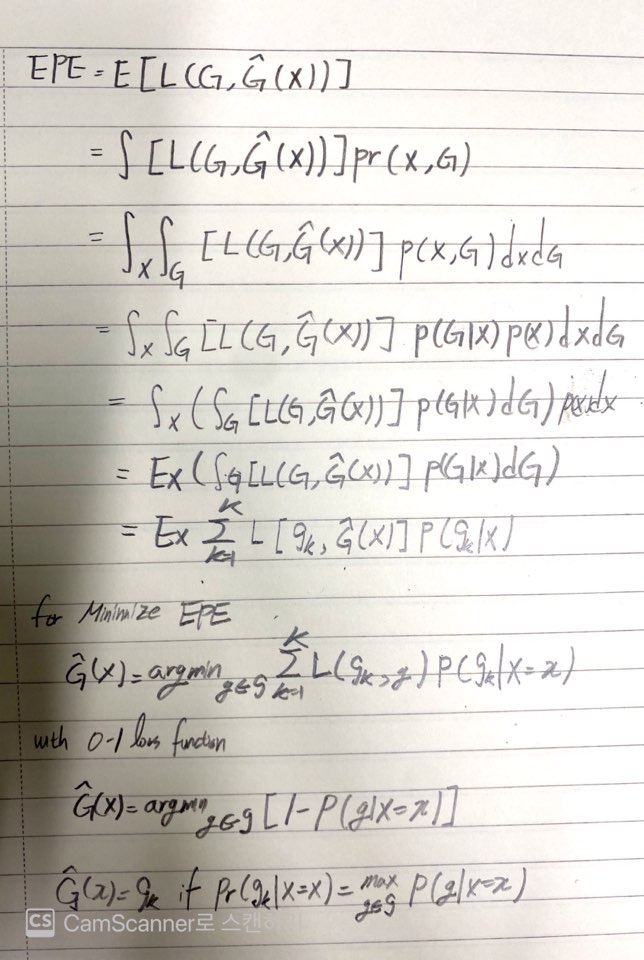 EPE = E[L(G, Ĝ(x))]
= ∫ [L(G, Ĝ(x))] pr(x, G)
= ∫x ∫G [L(G, Ĝ(x))] p(x, G) dx dG
= ∫x ∫G [L(G, Ĝ(x))] p(G|x) p(x) dx dG
= ∫x (∫G [L(G, Ĝ(x))] p(G|x) dG) p(x) dx
= Ex (∫G [L(G, Ĝ(x))] p(G|x) dG)
= Ex Σ_{k=1}^{K} L[g_k, Ĝ(x)] P(g_k|x)
for Minimize EPE
Ĝ(x) = argmin_{g∈G} Σ_{k=1}^{K} L(g_k, g) P(g_k|X=x)
with 0-1 loss function
Ĝ(x) = argmin_{g∈G} [1 - P(g|X=x)]
Ĝ(x) = g_k if Pr(g_k|X=x) = max_{g∈G} P(g|X=x)
CS CamScanner로